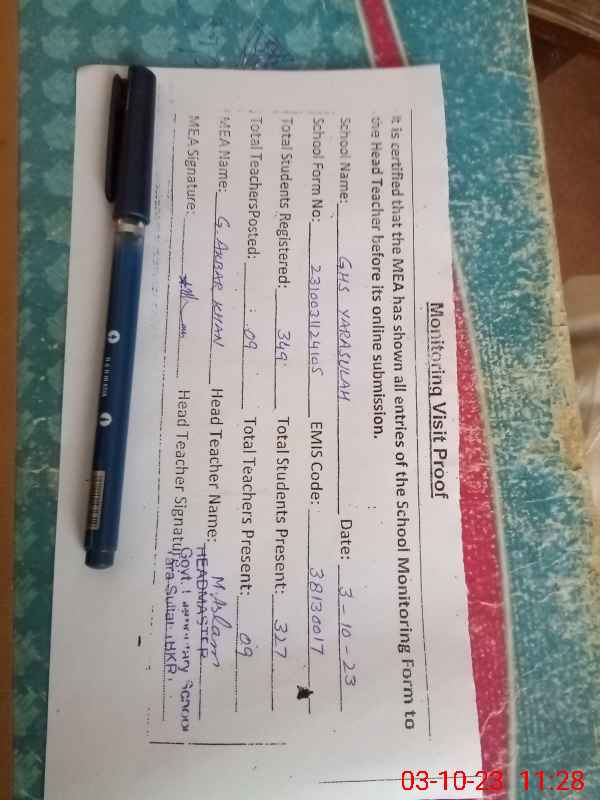 Monitoring Visit Proof
It is certified that the MEA has shown all entries of the School Monitoring Form to
the Head Teacher before its online submission.
School Name: GHS YARASULAH Date: 3-10-23
School Form No: 231003112410S EMIS Code: 38130017
Total Students Registered: 349 Total Students Present: 327
Total TeachersPosted: 09 Total Teachers Present: 09
MEA Name: G. AKBAR KHAN Head Teacher Name: M. Aslam
MEA Signature: Head Teacher Signature
HEADMASTER
Govt. School
03-10-23 11:28